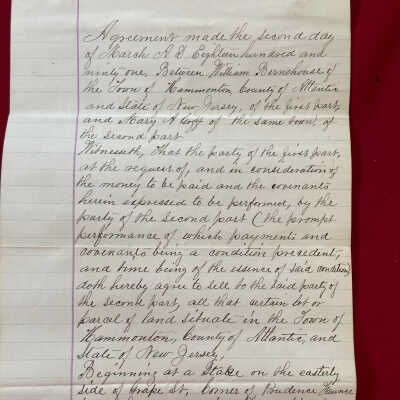 Agreement made the second day
of March A D Eighteen hundred and
ninty one. Between William Bernshouse of
the Town of Hammonton, County of Atlantic
and State of New Jersey, of the first part,
and Mary A of the same town, of
the second part
Witnesseth, That the party of the first part,
at the request of, and in consideration of
the money to be paid and the covenants
herein expressed to be performed, by the
party of the second part (the prompt
performance of which payments and
covenants being a condition precedent,
and time being of the essence of said condition)
doth hereby agree to sell to the said party of
the second part, all that certain lot or
parcel of land situate in the Town of
Hammonton, County of Atlantic, and
State of New Jersey.
Beginning at a Stake on the easterly
side of Grape St. Corner of Prudence